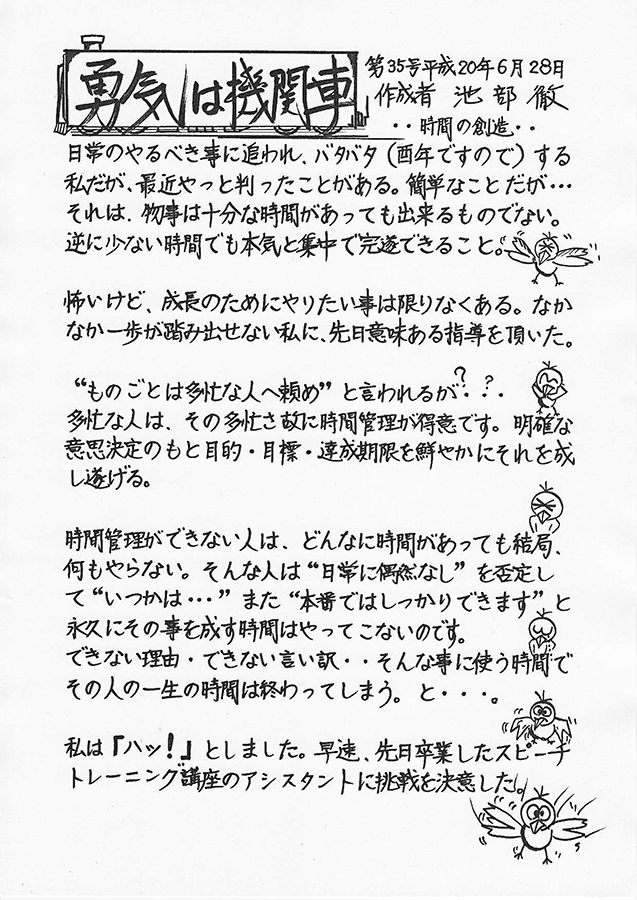 勇気は機関車
第35号平成20年6月28日
作成者 池部 徹
・・時間の創造・・
日常のやるべき事に追われ、バタバタ(酉年ですので)する
私だが、最近やっと判ったことがある。簡単なことだが…
それは、物事は十分な時間があっても出来るものでない。
逆に少ない時間でも本気と集中で完遂できること。
怖いけど、成長のためにやりたい事は限りなくある。なか
なか一歩が踏み出せない私に、先日意味ある指導を頂いた。
“ものごとは多忙な人へ頼め”と言われるが?・?・
多忙な人は、その多忙さ故に時間管理が得意です。明確な
意思決定のもと目的・目標・達成期限を鮮やかにそれを成
し遂げる。
時間管理ができない人は、どんなに時間があっても結局、
何もやらない。そんな人は“日常に偶然なし”を否定し
て“いつかは…”また“本番ではしっかりできます”と
永久にその事を成す時間はやってこないのです。
できない理由・できない言い訳・・そんな事に使う時間で
その人の一生の時間は終わってしまう。と・・・。
私は『ハッ!』としました。早速、先日卒業したスピーチ
トレーニング講座のアシスタントに挑戦を決意した。